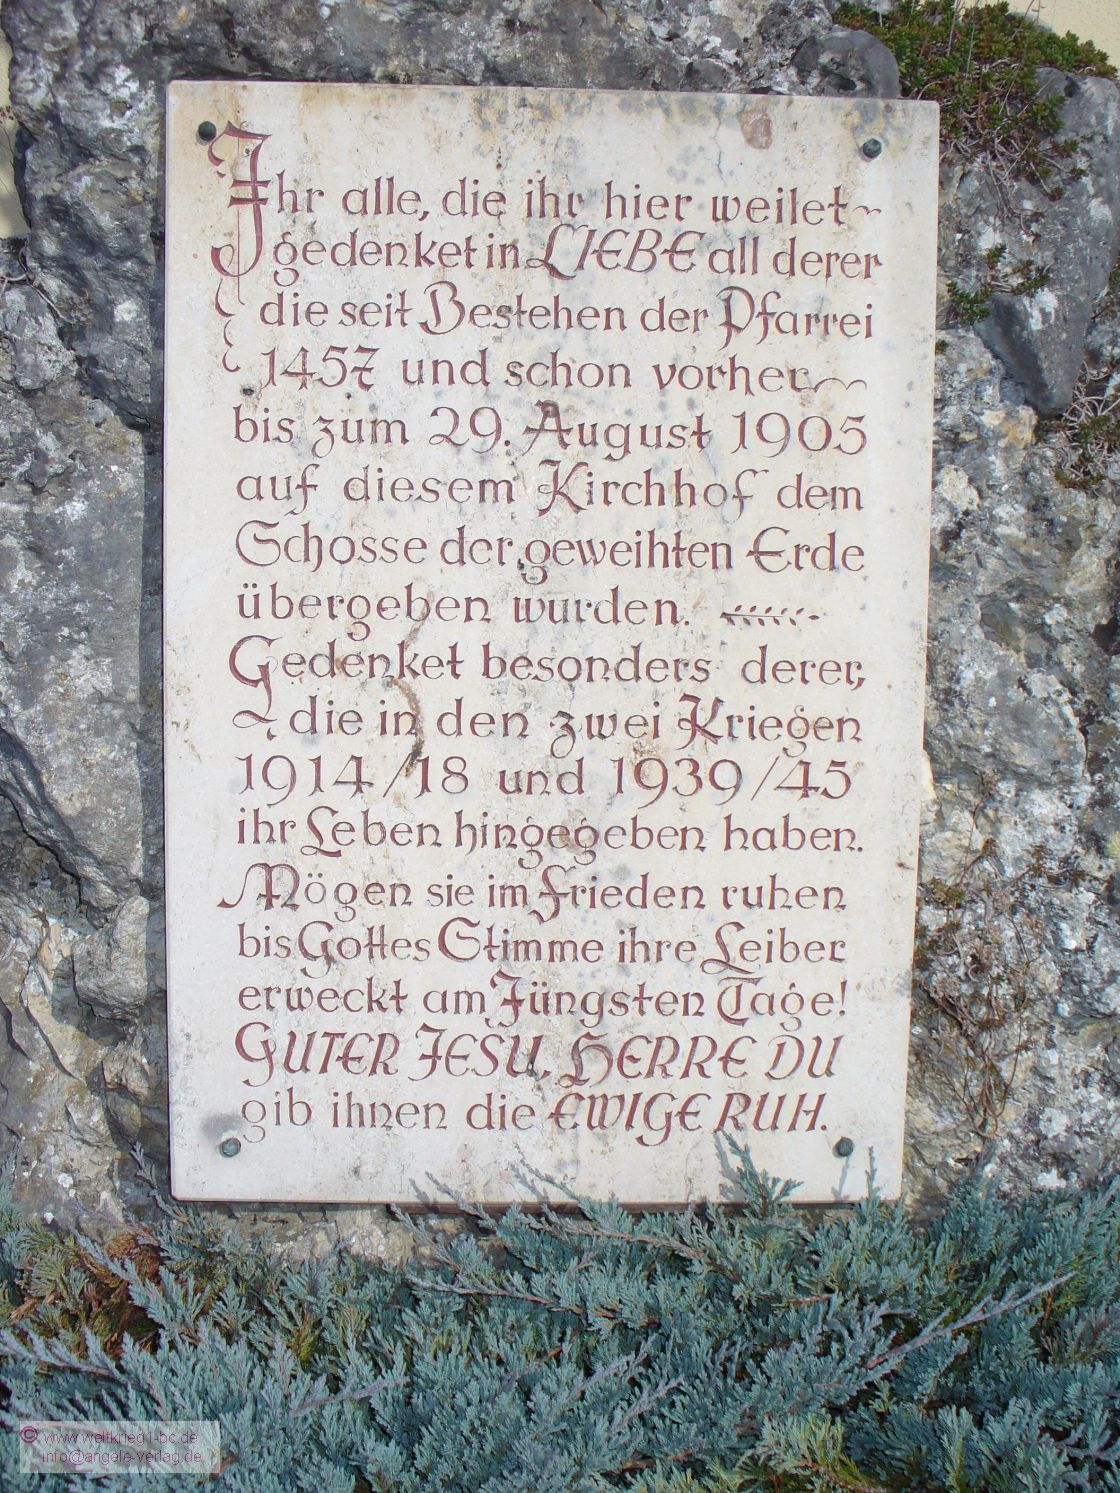 Ihr alle, die ihr hier weilet
gedenket in LIEBE all derer
die seit Bestehen der Pfarrei
1457 und schon vorher
bis zum 29. August 1905
auf diesem Kirchhof dem
Schosse der geweihten Erde
übergeben wurden.
Gedenket besonders derer,
die in den zwei Kriegen
1914/18 und 1939/45
ihr Leben hingegeben haben.
Mögen sie im Frieden ruhen
bis Gottes Stimme ihre Leiber
erweckt am Jüngsten Tage!
GUTER JESU, HERRE DU
gib ihnen die EWIGE RUH.
© www.weltkrieg1-bc.de
info@angele-verlag.de